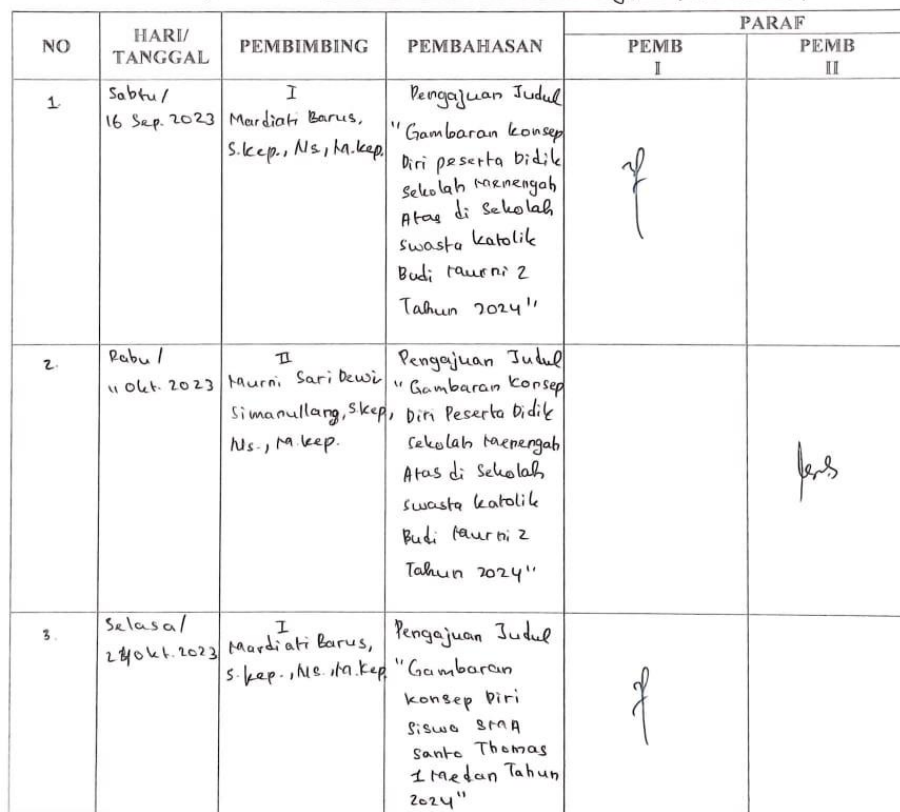 NO
HARI/
TANGGAL
PEMBIMBING
PEMBAHASAN
PARAF
PEMB
I
PEMB
II
1.
Sabtu/
16 Sep. 2023
I
Mardiati Barus,
S.kep., Ns., M.kep.
Pengajuan Judul
"Gambaran konsep
Diri peserta didik
Sekolah Menengah
Atas di Sekolah
Swasta katolik
Budi Murni 2
Tahun 2024"
2.
Rabu/
11 Okt. 2023
II
Murni Sari Dewi
Simanullang, S.kep,
Ns., M.kep.
Pengajuan Judul
"Gambaran Konsep
Diri Peserta Didik
Sekolah Menengah
Atas di Sekolah
Swasta katolik
Budi Murni 2
Tahun 2024"
3.
Selasa/
Okt. 2023
I
Mardiati Barus,
S.kep., Ns., M.kep
Pengajuan Judul
"Gambaran
konsep Diri
Siswa SMA
Santo Thomas
1 Medan Tahun
2024"